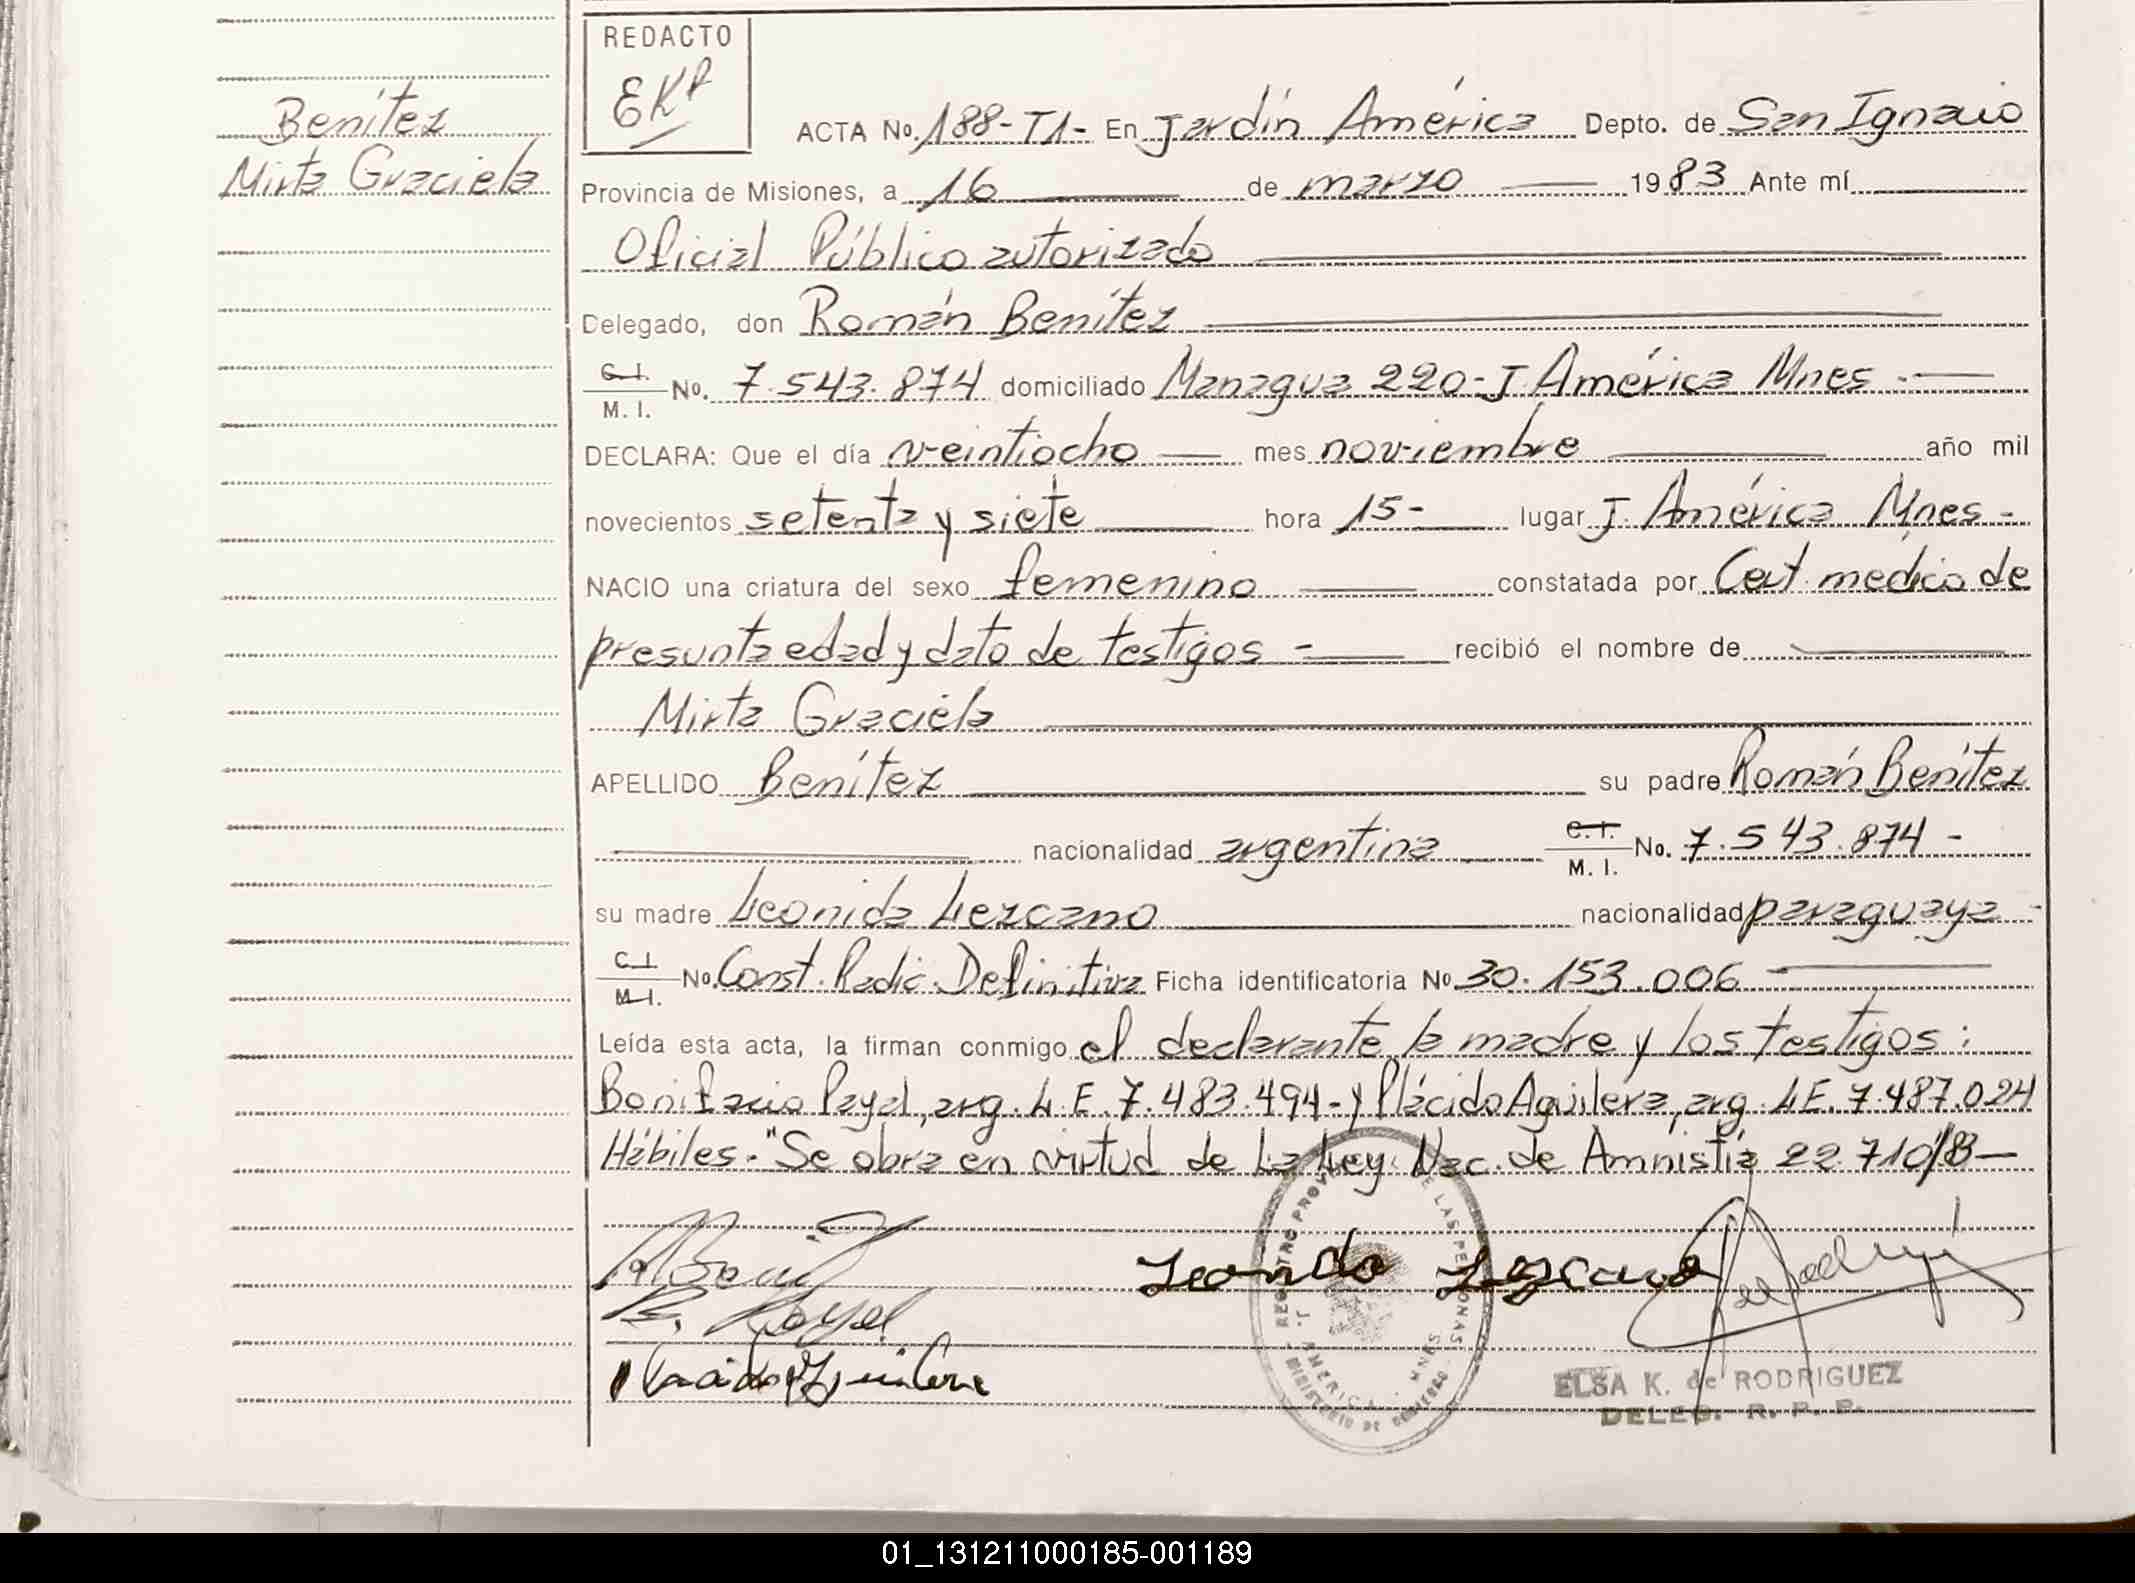 REDACTO
EKR
Benítez
Mirta Graciela
ACTA No. 188-T1- En Jardín América Depto. de San Ignacio
Provincia de Misiones, a 16 de marzo 1983 Ante mí
Oficial Público autorizado
Delegado, don Román Benítez
C.I. M. I. No. 7.543.874 domiciliado Managua 220-J. América Mnes -
DECLARA: Que el día veintiocho mes noviembre año mil
novecientos setenta y siete hora 15- lugar J. América Mnes -
NACIO una criatura del sexo femenino constatada por Cert. médico de
presunta edad y dato de testigos - recibió el nombre de
Mirta Graciela
APELLIDO Benítez su padre Román Benítez
nacionalidad argentina C.I. M. I. No. 7.543.874 -
su madre Leonida Lezcano nacionalidad paraguaya -
C.I. M.I. No. Const. Radic. Definitiva Ficha identificatoria No 30.153.006 -
Leída esta acta, la firman conmigo el declarante, la madre y los testigos:
Bonifacio Payal, arg. L.E. 7.483.494- y Plácido Aguilera, arg. L.E. 7.487.024
Hábiles. "Se obra en virtud de La Ley Nac. de Amnistía 22.710/83 -
Leonida Lezcano
REGISTRO PROV DE LAS PERSONAS
J. AMERICA - MNES
MINISTERIO DE GOBIERNO
ELSA K. de RODRIGUEZ
DELEG. R. P. P.
01_131211000185-001189